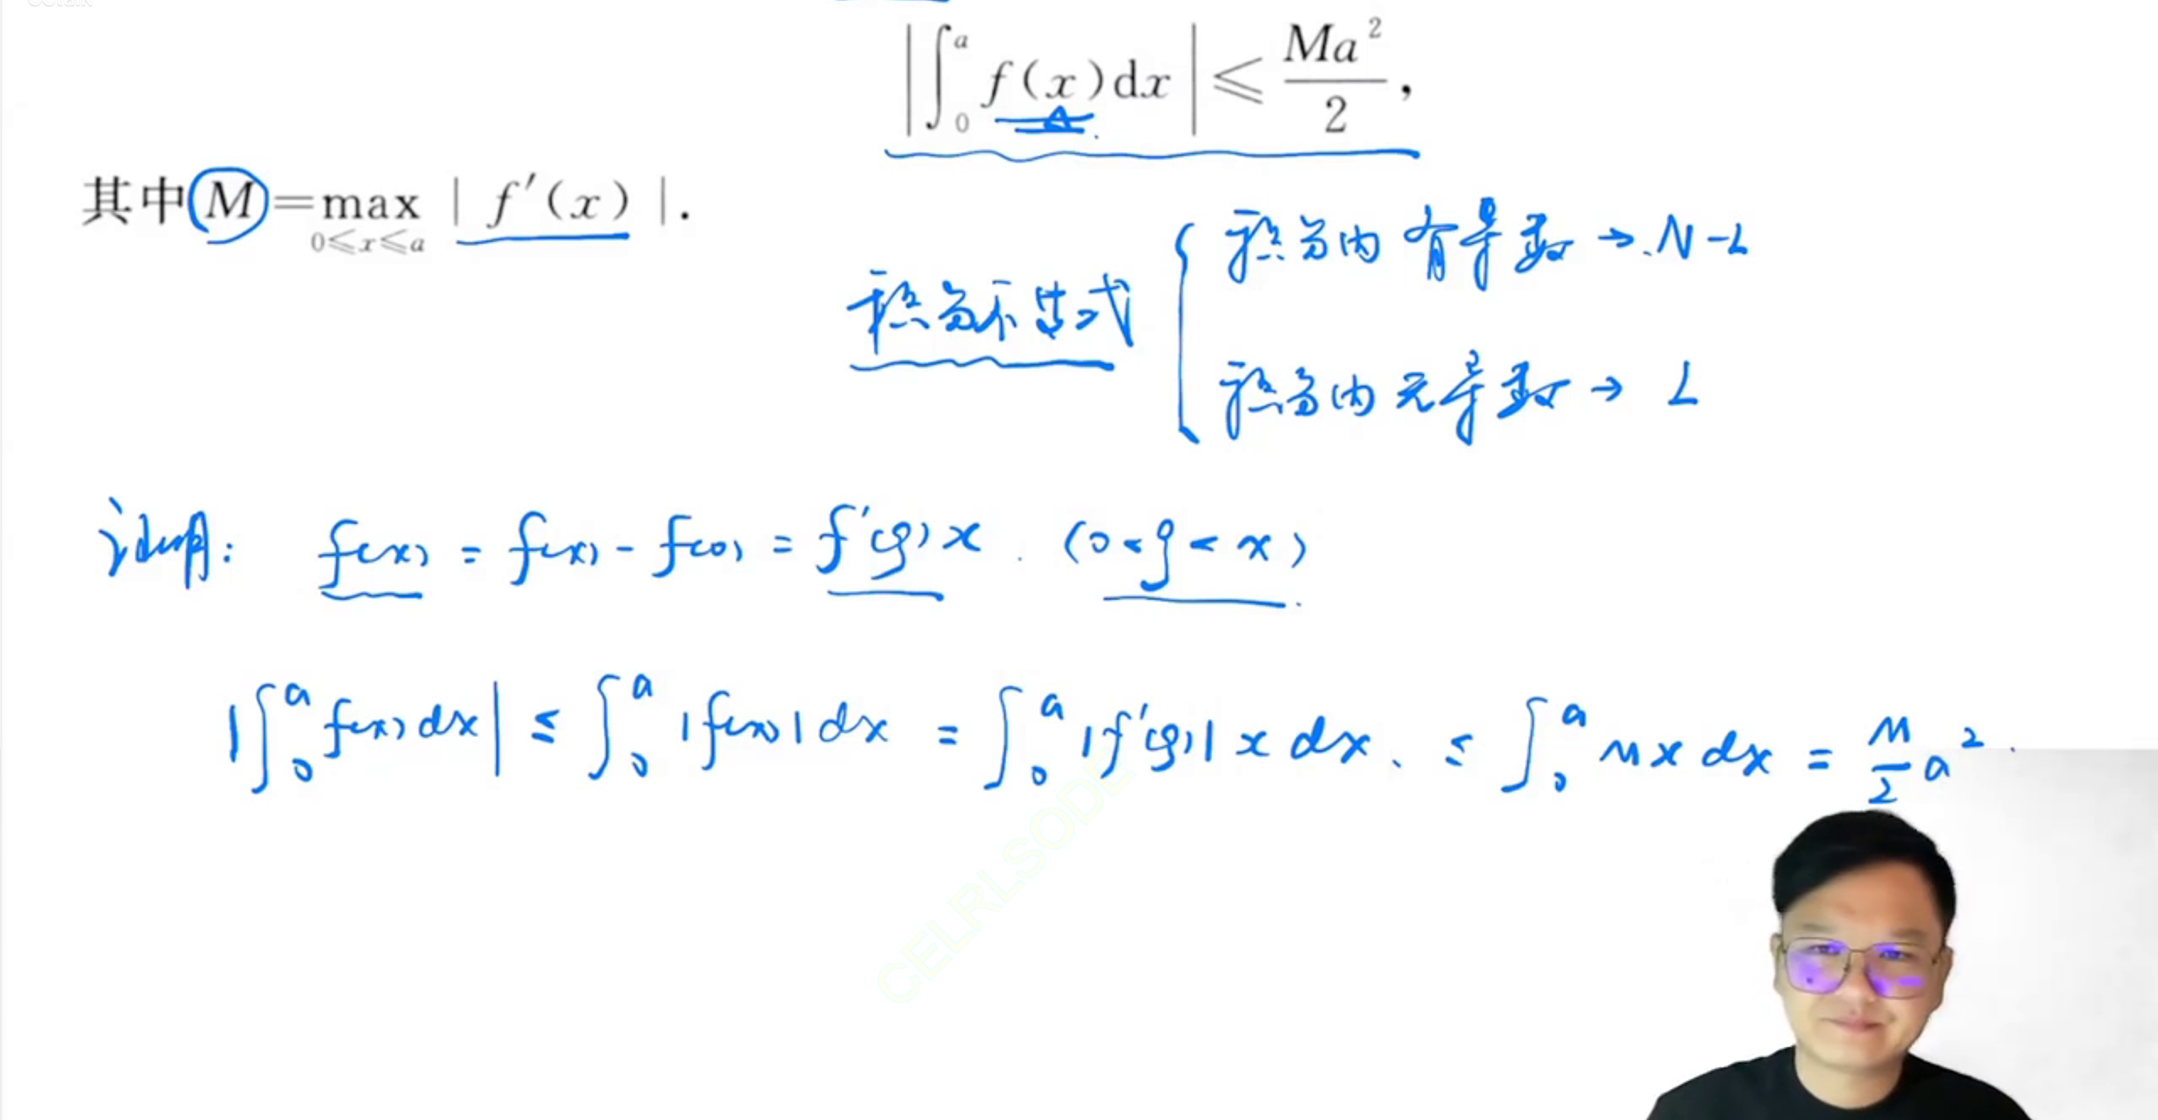 |∫₀ᵃ f(x)dx| ≤ Ma²/2,
其中M=max |f′(x)|.
0≤x≤a
积分不等式 { 积分内有导数→N-L
积分内无导数→L
证明: f(x) = f(x) - f(0) = f′(ξ)x. (0<ξ<x)
|∫₀ᵃ f(x)dx| ≤ ∫₀ᵃ |f(x)|dx = ∫₀ᵃ |f′(ξ)| x dx. ≤ ∫₀ᵃ Mx dx = M/2 a².
CELRLSODE